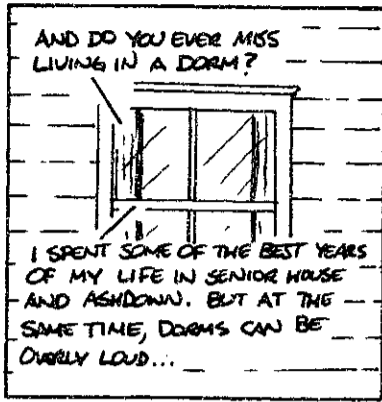 AND DO YOU EVER MISS
LIVING IN A DORM?
I SPENT SOME OF THE BEST YEARS
OF MY LIFE IN SENIOR HOUSE
AND ASHDOWN. BUT AT THE
SAME TIME, DORMS CAN BE
OVERLY LOUD...